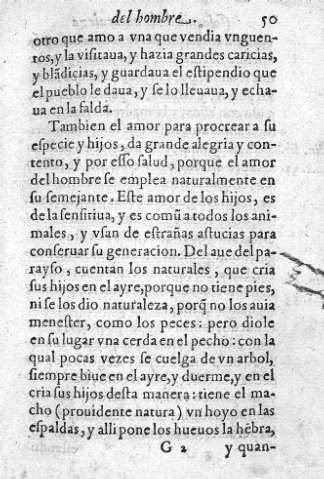 del hombre. 50
otro que amo a vna que vendia vnguen-
tos, y la visitaua, y hazia grandes caricias,
y blādicias, y guardaua el estipendio que
el pueblo le daua, y se lo lleuaua, y echa-
ua en la falda.
Tambien el amor para procrear a su
especie y hijos, da grande alegria y con-
tento, y por esso salud, porque el amor
del hombre se emplea naturalmente en
su semejante. Este amor de los hijos, es
de la sensitiua, y es comū a todos los ani-
males, y vsan de estrañas astucias para
conseruar su generacion. Del aue del pa-
rayso, cuentan los naturales, que cria
sus hijos en el ayre, porque no tiene pies,
ni se los dio naturaleza, porq̄ no los auia
menester, como los peces: pero diole
en su lugar vna cerda en el pecho: con la
qual pocas vezes se cuelga de vn arbol,
siempre biue en el ayre, y duerme, y en el
cria sus hijos desta manera: tiene el ma-
cho (prouidente natura) vn hoyo en las
espaldas, y alli pone los hueuos la hēbra,
G 2 y quan-